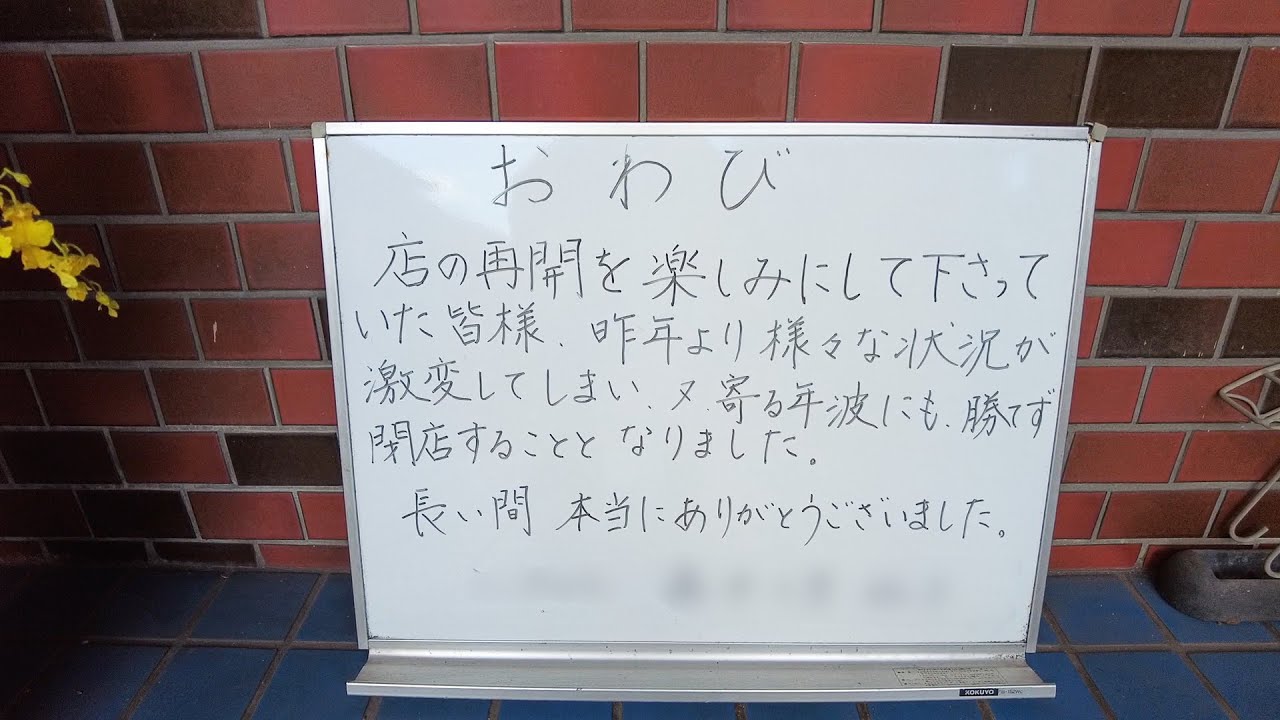 おわび
店の再開を楽しみにして下さって
いた皆様、昨年より様々な状況が
激変してしまい、又、寄る年波にも、勝てず
閉店することとなりました。
長い間 本当にありがとうございました。
KOKUYO